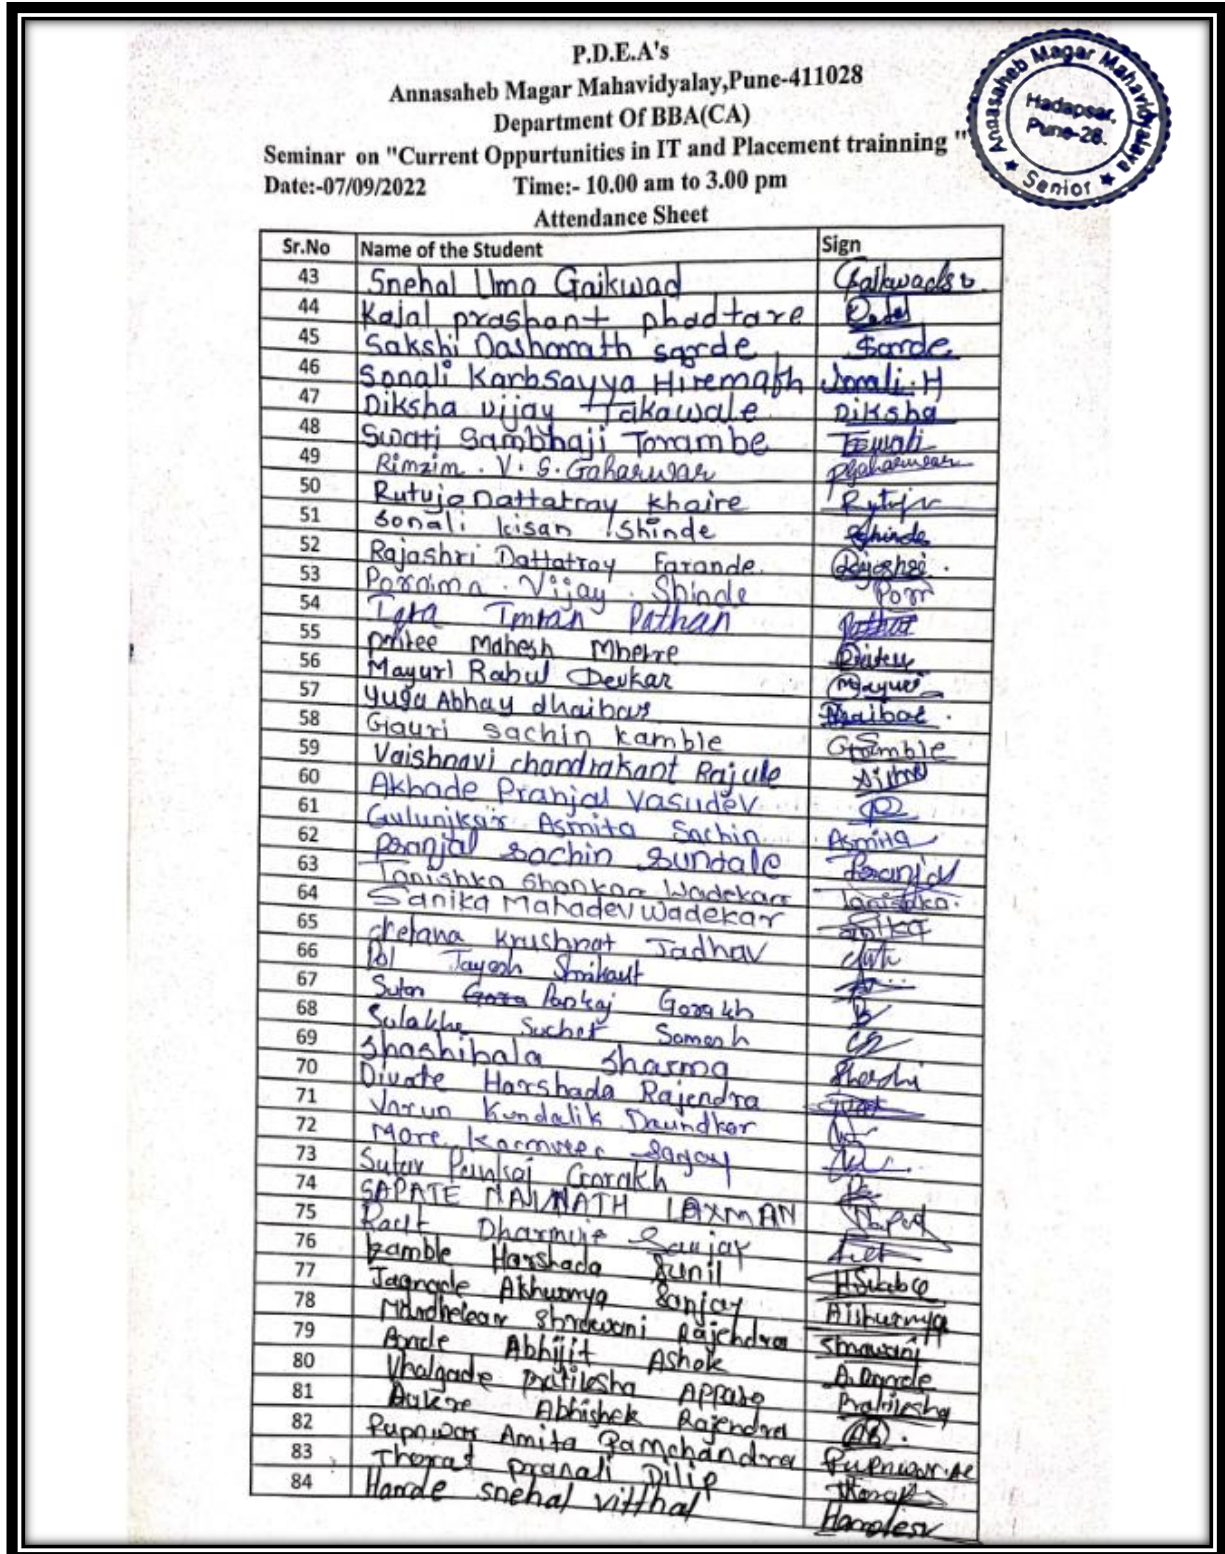 P.D.E.A's
Annasaheb Magar Mahavidyalay,Pune-411028
Department Of BBA(CA)
Seminar on "Current Oppurtunities in IT and Placement trainning "
Date:-07/09/2022 Time:- 10.00 am to 3.00 pm
Attendance Sheet
Annasaheb Magar Mahavidyalaya
Hadapsar,
Pune-28.
★ Senior ★
Sr.No Name of the Student Sign
43 Snehal Uma Gaikwad
44 Kajal prashant phadtare
45 Sakshi Dashorath sarde Sarde
46 Sonali Karbsayya Hiremath Sonali.H
47 Diksha vijay Takawale Diksha
48 Swati Sambhaji Torambe
49 Rimzim . V. S. Gaharwar
50 Rutuja Dattatray Khaire
51 Sonali kisan Shinde Shinde
52 Rajashri Dattatray Farande. Rajashri.
53 Pornima . Vijay . Shinde Porn
54 Iqra Imran Pathan Pathan
55 Mahesh Mhetre
56 Mayuri Rahul Devkar Mayuri
57 Yuga Abhay dhaibar Dhaibar.
58 Gauri sachin kamble Gkamble
59 Vaishnavi chandrakant Rajule
60 Akhade Pranjal Vasudev
61 Gulunjkar Asmita Sachin Asmita
62 Pranjal Sachin Bundale Pranjal
63 Tanishka Shankar Wadekar Tanishka.
64 Sanika Mahadev Wadekar
65 Chetana Krushnat Jadhav
66 Jayesh Shrikant
67 Pankaj Gorakh
68 Sulakhe Suchet Somesh
69 Shashibala Sharma Shashi
70 Divate Harshada Rajendra
71 Varun Kundalik Daundkar
72 More Karmveer Sanjay
73 Sutar Pankaj Gorakh
74 SAPATE NAVNATH LAXMAN
75 Raut Sanjay
76 kamble Harshada Sunil
77 Jagnade Aishwarya Sanjay Aishwarya
78 Shrawani Rajendra Shrawani
79 Abhijit Ashok
80 Vhalgade Pratiksha Appaso Pratiksha
81 Abhishek Rajendra
82 Pupnwar Amita Ramchandra
83 Thorat Pranali Dilip Thorat
84 Hande snehal vitthal